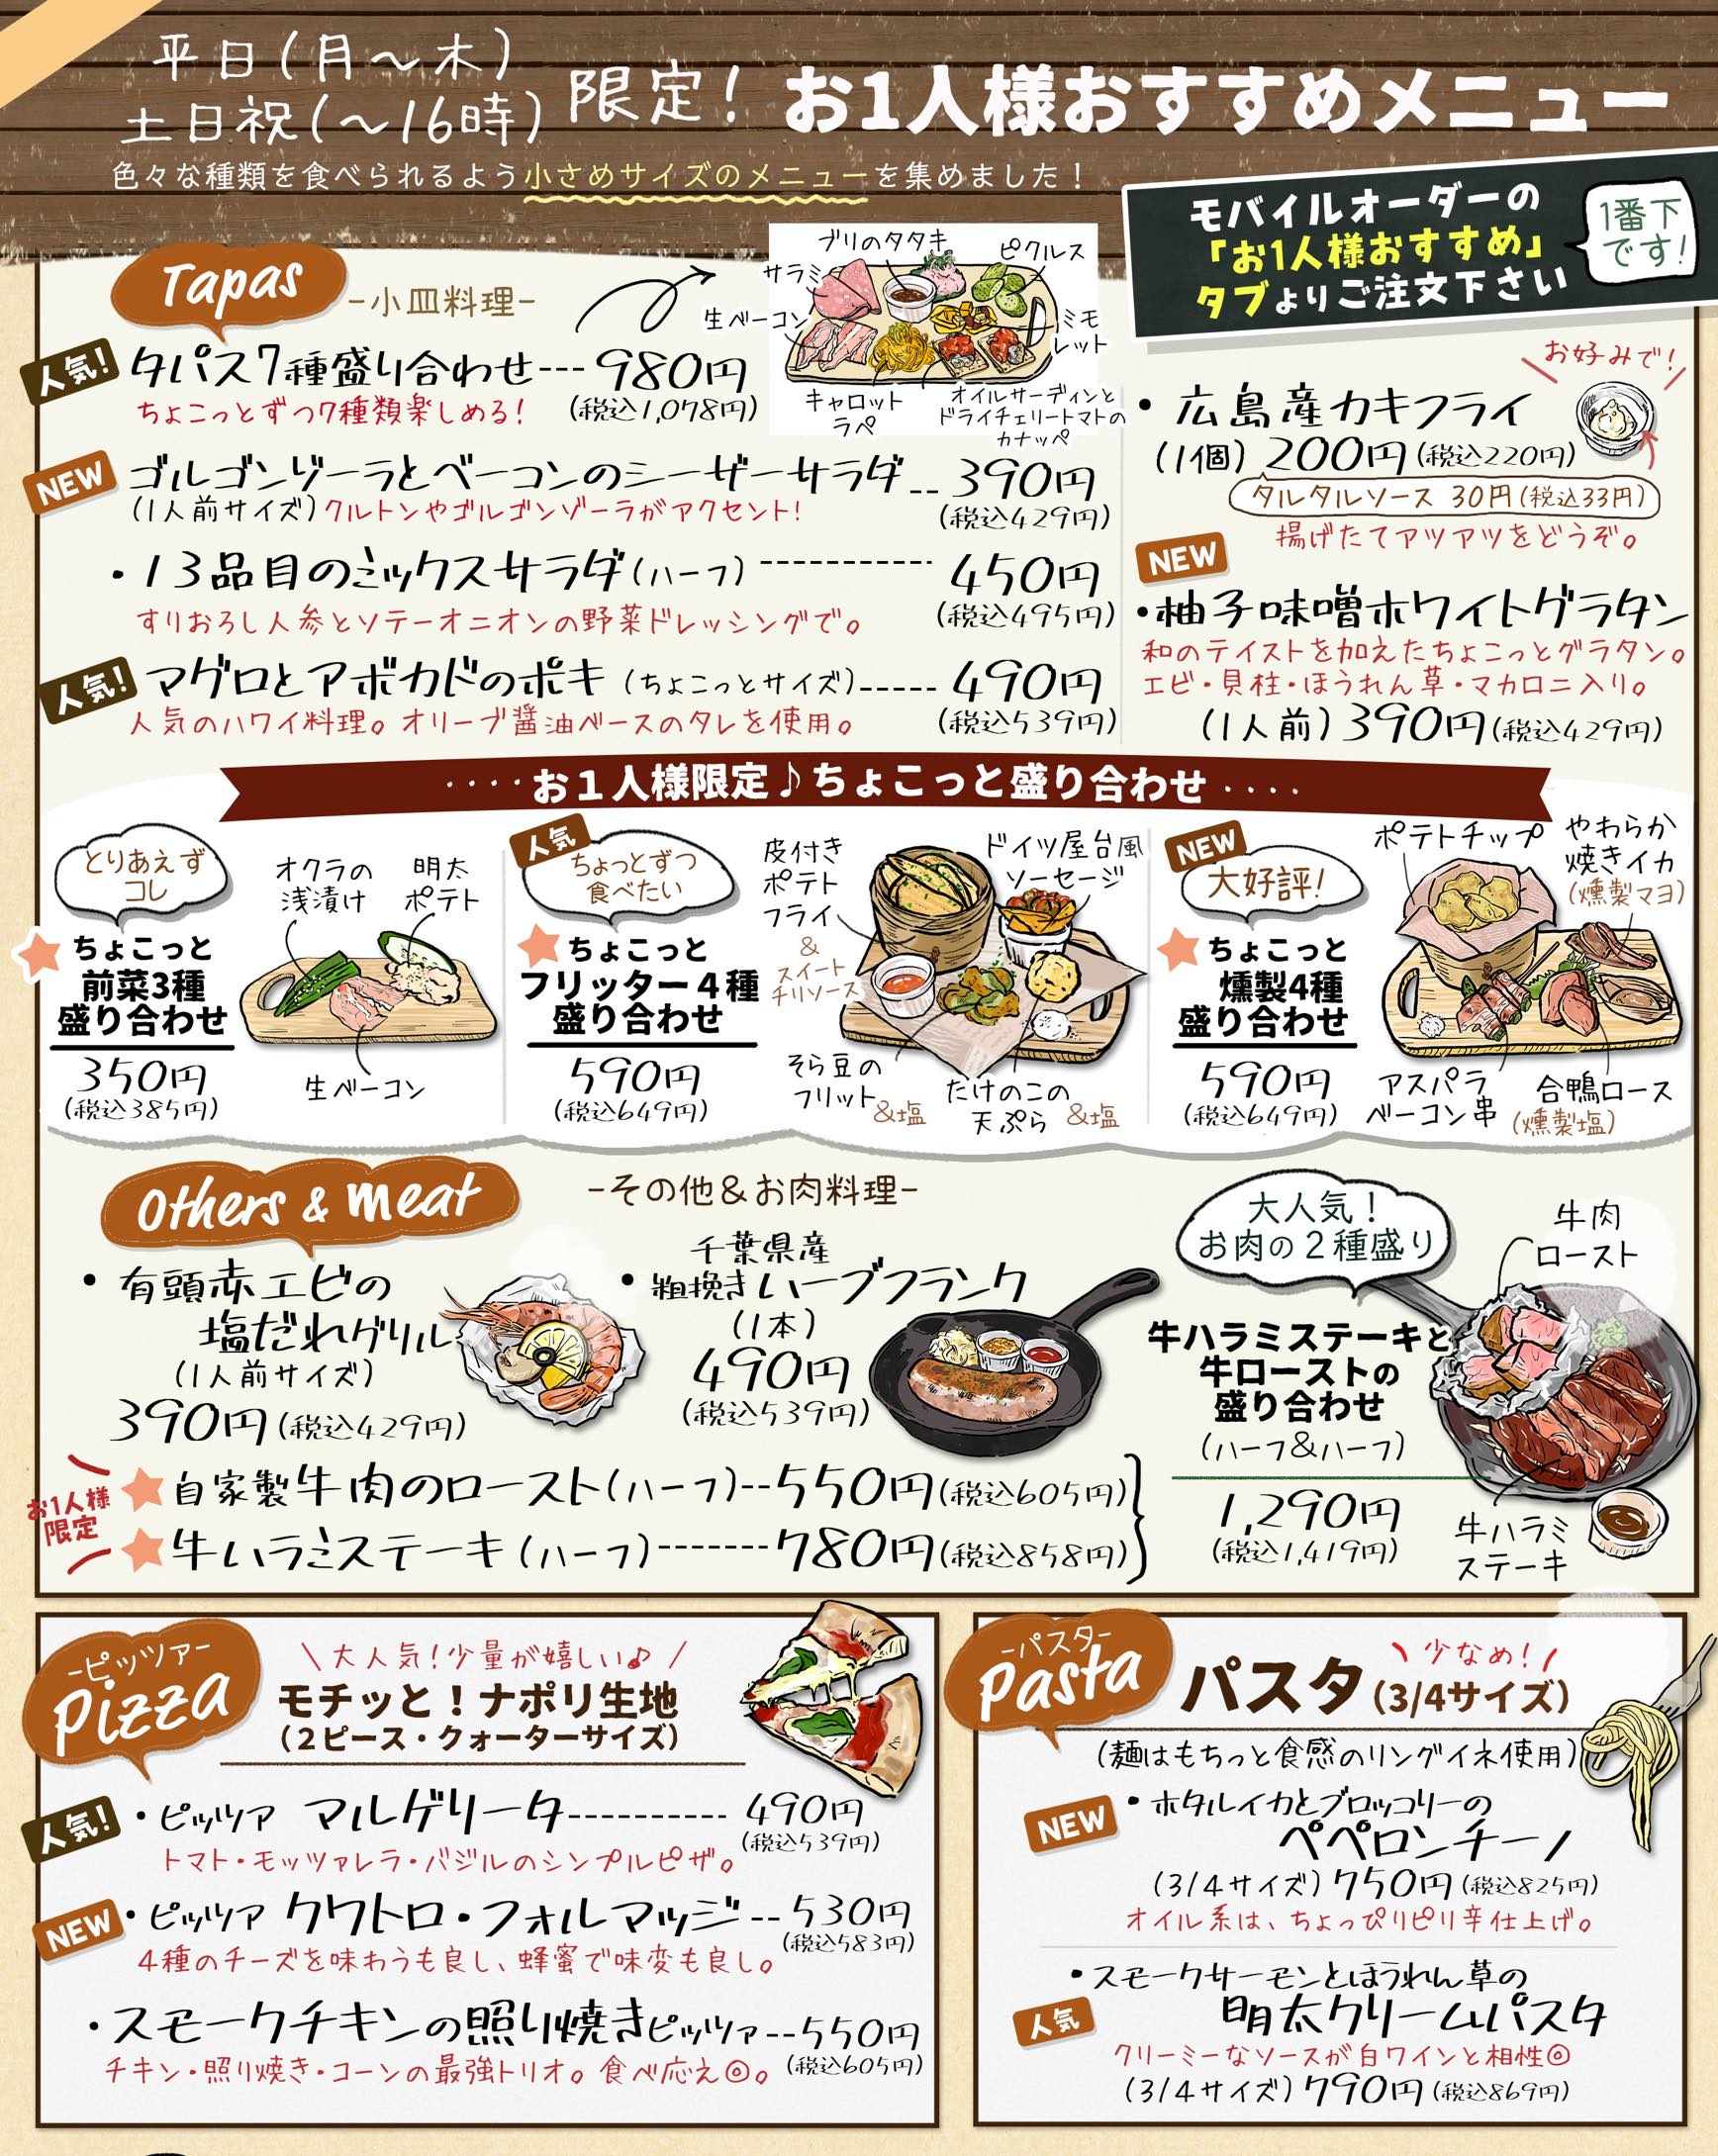 平日(月～木)
土日祝(～16時)
限定！ お1人様おすすめメニュー
色々な種類を食べられるよう小さめサイズのメニューを集めました！
モバイルオーダーの
「お1人様おすすめ」
タブよりご注文下さい
1番下
です！
Tapas
-小皿料理-
人気！
タパス7種盛り合わせ---980円
ちょこっとずつ7種類楽しめる！
(税込1,078円)
ブリのタタキ
ピクルス
サラミ
生ベーコン
ミモ
レット
キャロット
ラペ
オイルサーディンと
ドライチェリートマトの
カナッペ
NEW
ゴルゴンゾーラとベーコンのシーザーサラダ--390円
(1人前サイズ)クルトンやゴルゴンゾーラがアクセント！
(税込429円)
・13品目のミックスサラダ(ハーフ)----------450円
すりおろし人参とソテーオニオンの野菜ドレッシングで。
(税込495円)
人気！
マグロとアボカドのポキ(ちょこっとサイズ)-----490円
人気のハワイ料理。オリーブ醤油ベースのタレを使用。
(税込539円)
お好みで！
・広島産カキフライ
(1個)200円(税込220円)
タルタルソース 30円(税込33円)
揚げたてアツアツをどうぞ。
NEW
・柚子味噌ホワイトグラタン
和のテイストを加えたちょこっとグラタン。
エビ・貝柱・ほうれん草・マカロニ入り。
(1人前)390円(税込429円)
････お1人様限定♪ちょこっと盛り合わせ････
とりあえず
コレ
ちょこっと
前菜3種
盛り合わせ
350円
(税込385円)
オクラの
浅漬け
明太
ポテト
生ベーコン
人気
ちょっとずつ
食べたい
ちょこっと
フリッター4種
盛り合わせ
590円
(税込649円)
皮付き
ポテト
フライ
&
スイート
チリソース
ドイツ屋台風
ソーセージ
そら豆の
フリット&塩
たけのこの
天ぷら &塩
NEW
大好評！
ちょこっと
燻製4種
盛り合わせ
590円
(税込649円)
ポテトチップ
やわらか
焼きイカ
(燻製マヨ)
アスパラ
ベーコン串
合鴨ロース
(燻製塩)
Others & meat
-その他&お肉料理-
・有頭赤エビの
塩だれグリル
(1人前サイズ)
390円(税込429円)
千葉県産
・粗挽きハーブフランク
(1本)
490円
(税込539円)
お1人様
限定
自家製牛肉のロースト(ハーフ)--550円(税込605円)
牛ハラミステーキ(ハーフ)-------780円(税込858円)
大人気！
お肉の2種盛り
牛肉
ロースト
牛ハラミステーキと
牛ローストの
盛り合わせ
(ハーフ&ハーフ)
1,290円
(税込1,419円)
牛ハラミ
ステーキ
-ピッツァ-
Pizza
\大人気！少量が嬉しい♪/
モチッと！ナポリ生地
(2ピース・クォーターサイズ)
人気！
・ピッツァ マルゲリータ----------490円
(税込539円)
トマト・モッツァレラ・バジルのシンプルピザ。
NEW
・ピッツァ クワトロ・フォルマッジ--530円
(税込583円)
4種のチーズを味わうも良し、蜂蜜で味変も良し。
・スモークチキンの照り焼きピッツァ--550円
チキン・照り焼き・コーンの最強トリオ。食べ応え◎。
(税込605円)
-パスタ-
Pasta
\少なめ！/
パスタ(3/4サイズ)
(麺はもちっと食感のリングイネ使用)
NEW
・ホタルイカとブロッコリーの
ペペロンチーノ
(3/4サイズ)750円(税込825円)
オイル系は、ちょっぴりピリ辛仕上げ。
・スモークサーモンとほうれん草の
人気
明太クリームパスタ
クリーミーなソースが白ワインと相性◎
(3/4サイズ)790円(税込869円)